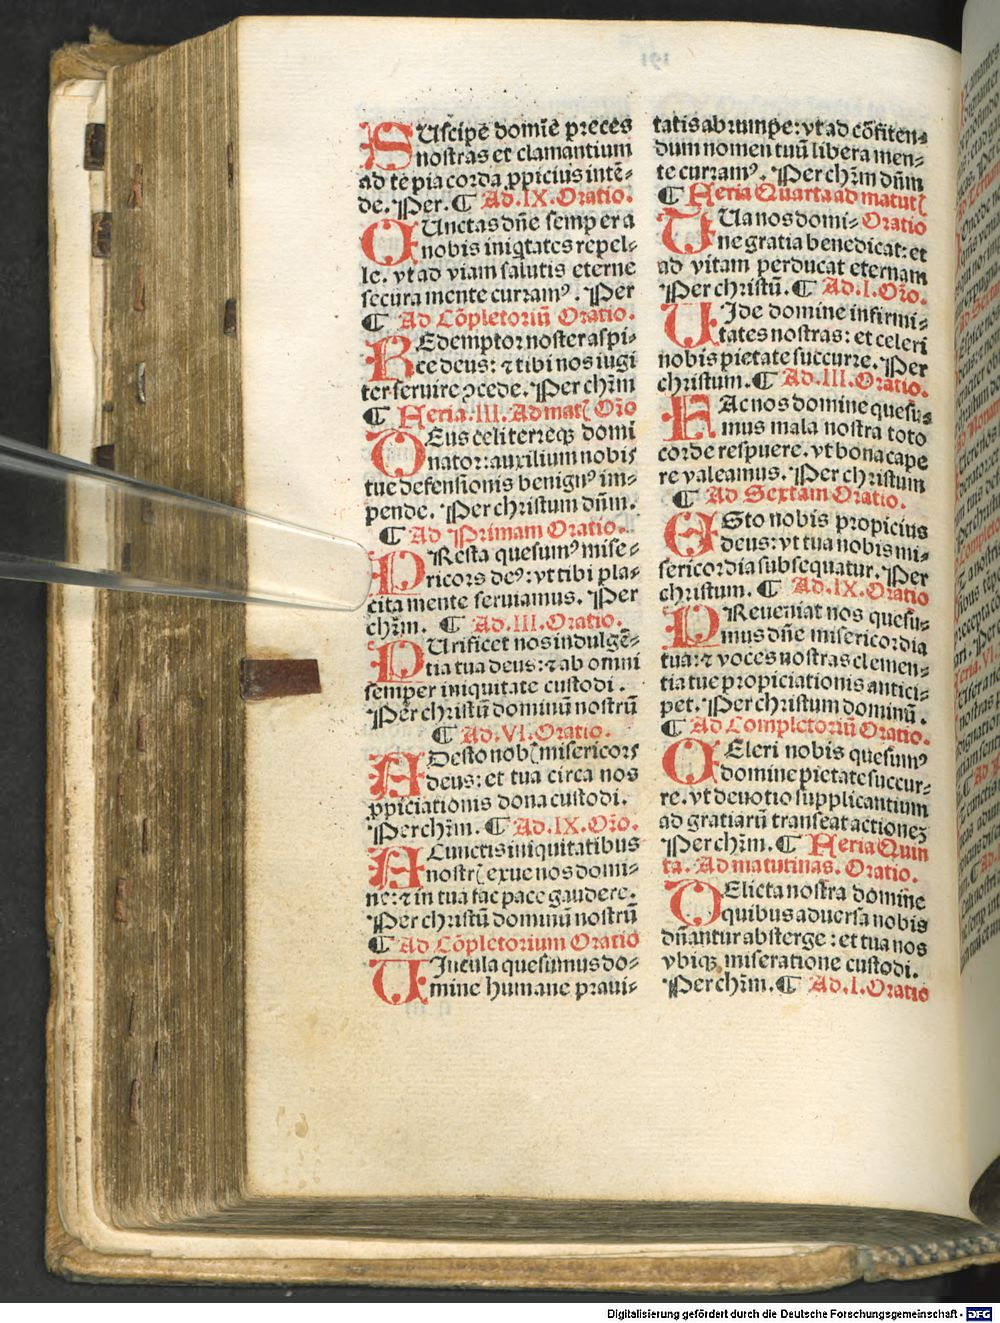 SUscipe domĩe preces
nostras et clamantium
ad te pia corda ꝓpicius intẽ⸗
de. Per. ¶ Ad. IX. Oratio.
CUnctas dñe semper a
nobis iniqtates repel⸗
le. vt ad viam salutis eterne
secura mente curramꝰ. Per
¶ Ad Cõpletoriũ Oratio.
REdemptor noster aspi⸗
ce deus: ⁊ tibi nos iugi
ter seruire ꝯcede. Per chr̃m
¶ Feria. III. Ad mat̃ Or̃o
DEus celi terreqꝫ domi
nator: auxilium nobis
tue defensionis benignꝰ im⸗
pende. Per christum dñm.
¶ Ad Primam Oratio.
PResta quesumꝰ mise⸗
ricors deꝰ: vt tibi pla⸗
cita mente seruiamus. Per
chr̃m. ¶ Ad. III. Oratio.
PUrificet nos indulgẽ⸗
tia tua deus: ⁊ ab omni
semper iniquitate custodi.
Per christũ dominũ nostrũ
¶ Ad. VI. Oratio.
ADesto nob̃ misericors
deus: et tua circa nos
ꝓpiciationis dona custodi.
Per chr̃m. ¶ Ad. IX. Or̃o.
ACunctis iniquitatibus
nostr̃ exue nos domi⸗
ne: ⁊ in tua fac pace gaudere.
Per christũ dominũ nostrũ
¶ Ad Cõpletorium Oratio
UIncula quesumus do⸗
mine humane praui⸗
tatis abrumpe: vt ad cõfiten⸗
dum nomen tuũ libera men⸗
te curramꝰ. Per chr̃m dñm
¶ Feria Quarta ad matut̃
TUa nos domi⸗ Oratio
ne gratia benedicat: et
ad vitam perducat eternam
Per christũ. ¶ Ad. I. Or̃o.
UIde domine infirmi⸗
tates nostras: et celeri
nobis pietate succurre. Per
christum. ¶ Ad. III. Oratio.
FAc nos domine quesu⸗
mus mala nostra toto
corde respuere. vt bona cape
re valeamus. Per christum
¶ Ad Sextam Oratio.
ESto nobis propicius
deus: vt tua nobis mi⸗
sericordia subsequatur. Per
christum. ¶ Ad. IX. Oratio
PReueniat nos quesu⸗
mus dñe misericordia
tua: ⁊ voces nostras clemen⸗
tia tue propiciationis antici⸗
pet. Per christum dominũ.
¶ Ad Completoriũ Oratio.
CEleri nobis quesumꝰ
domine pietate succur⸗
re. vt deuotio supplicantium
ad gratiarũ transeat actionez
Per chr̃m. ¶ Feria Quin
ta. Ad matutinas. Oratio.
DElicta nostra domine
quibus aduersa nobis
dñantur absterge: et tua nos
vbiqꝫ miseratione custodi.
Per chr̃m. ¶ Ad. I. Oratio
Digitalisierung gefördert durch die Deutsche Forschungsgemeinschaft - DFG